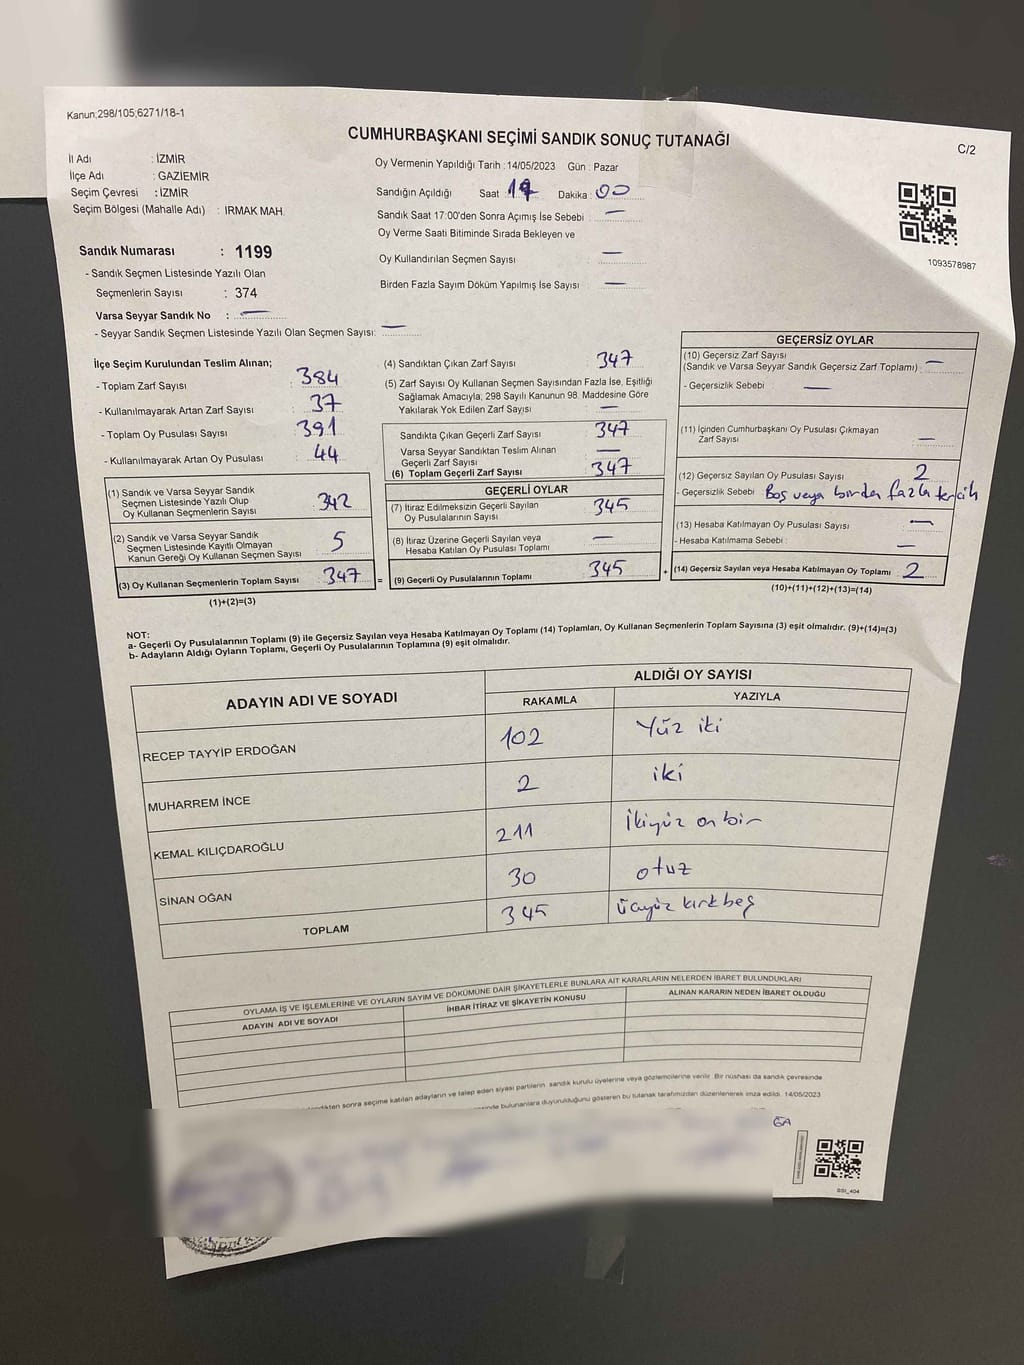 Kanun;298/105;6271/18-1
CUMHURBAŞKANI SEÇİMİ SANDIK SONUÇ TUTANAĞI
C/2
İl Adı : İZMİR
İlçe Adı : GAZİEMİR
Seçim Çevresi : İZMİR
Seçim Bölgesi (Mahalle Adı) : IRMAK MAH.
Oy Vermenin Yapıldığı Tarih : 14/05/2023 Gün : Pazar
Sandığın Açıldığı Saat Dakika : 00
Sandık Saat 17:00'den Sonra Açımış İse Sebebi : —
Oy Verme Saati Bitiminde Sırada Bekleyen ve
Oy Kullandırılan Seçmen Sayısı : —
Birden Fazla Sayım Döküm Yapılmış İse Sayısı : —
1093578987
Sandık Numarası : 1199
- Sandık Seçmen Listesinde Yazılı Olan
Seçmenlerin Sayısı : 374
Varsa Seyyar Sandık No : —
- Seyyar Sandık Seçmen Listesinde Yazılı Olan Seçmen Sayısı: —
İlçe Seçim Kurulundan Teslim Alınan;
- Toplam Zarf Sayısı : 384
- Kullanılmayarak Artan Zarf Sayısı : 37
- Toplam Oy Pusulası Sayısı : 391
- Kullanılmayarak Artan Oy Pusulası : 44
(1) Sandık ve Varsa Seyyar Sandık
Seçmen Listesinde Yazılı Olup
Oy Kullanan Seçmenlerin Sayısı : 342
(2) Sandık ve Varsa Seyyar Sandık
Seçmen Listesinde Kayıtlı Olmayan
Kanun Gereği Oy Kullanan Seçmen Sayısı : 5
(3) Oy Kullanan Seçmenlerin Toplam Sayısı : 347 =
(1)+(2)=(3)
(4) Sandıktan Çıkan Zarf Sayısı : 347
(5) Zarf Sayısı Oy Kullanan Seçmen Sayısından Fazla İse, Eşitliği
Sağlamak Amacıyla; 298 Sayılı Kanunun 98. Maddesine Göre
Yakılarak Yok Edilen Zarf Sayısı : —
Sandıkta Çıkan Geçerli Zarf Sayısı : 347
Varsa Seyyar Sandıktan Teslim Alınan
Geçerli Zarf Sayısı : —
(6) Toplam Geçerli Zarf Sayısı : 347
GEÇERLİ OYLAR
(7) İtiraz Edilmeksizin Geçerli Sayılan
Oy Pusulalarının Sayısı : 345
(8) İtiraz Üzerine Geçerli Sayılan veya
Hesaba Katılan Oy Pusulası Toplamı : —
(9) Geçerli Oy Pusulalarının Toplamı : 345 +
GEÇERSİZ OYLAR
(10) Geçersiz Zarf Sayısı
(Sandık ve Varsa Seyyar Sandık Geçersiz Zarf Toplamı) : —
- Geçersizlik Sebebi : —
(11) İçinden Cumhurbaşkanı Oy Pusulası Çıkmayan
Zarf Sayısı : —
(12) Geçersiz Sayılan Oy Pusulası Sayısı : 2
- Geçersizlik Sebebi : Boş veya birden fazla tercih
(13) Hesaba Katılmayan Oy Pusulası Sayısı : —
- Hesaba Katılmama Sebebi : —
(14) Geçersiz Sayılan veya Hesaba Katılmayan Oy Toplamı : 2
(10)+(11)+(12)+(13)=(14)
NOT:
a- Geçerli Oy Pusulalarının Toplamı (9) ile Geçersiz Sayılan veya Hesaba Katılmayan Oy Toplamı (14) Toplamları, Oy Kullanan Seçmenlerin Toplam Sayısına (3) eşit olmalıdır. (9)+(14)=(3)
b- Adayların Aldığı Oyların Toplamı, Geçerli Oy Pusulalarının Toplamına (9) eşit olmalıdır.
ADAYIN ADI VE SOYADI
ALDIĞI OY SAYISI
RAKAMLA YAZIYLA
RECEP TAYYİP ERDOĞAN 102 Yüz iki
MUHARREM İNCE 2 iki
KEMAL KILIÇDAROĞLU 211 İkiyüz on bir
SİNAN OĞAN 30 otuz
TOPLAM 345 Üçyüz kırk beş
OYLAMA İŞ VE İŞLEMLERİNE VE OYLARIN SAYIM VE DÖKÜMÜNE DAİR ŞİKAYETLERLE BUNLARA AİT KARARLARIN NELERDEN İBARET BULUNDUKLARI
ADAYIN ADI VE SOYADI İHBAR İTİRAZ VE ŞİKAYETİN KONUSU ALINAN KARARIN NEDEN İBARET OLDUĞU
sonra seçime katılan adayların ve talep eden siyasi partilerin sandık kurulu üyelerine veya gözlemcilerine verilir. Bir nüshası da sandık çevresinde
bulunanlara duyurulduğunu gösteren bu tutanak tarafımızdan düzenlenerek imza edildi. 14/05/2023
SSI_404